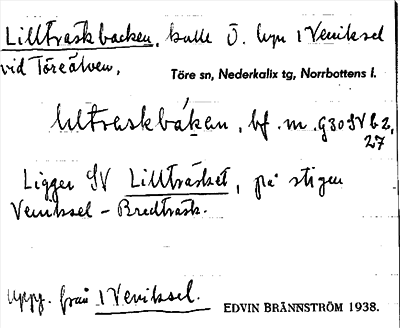 Lillträskbacken, kulle Ö. byn 1 Veniksel
vid Töreälven,
Töre sn, Nederkalix tg, Norrbottens l.
lıltraskbákan, bf. m. G30 SV b 2,
27
Ligger SV Lillträsket, på stigen
Veniksel – Bredträsk.
Upp. från 1 Veniksel.
EDVIN BRÄNNSTRÖM 1938.